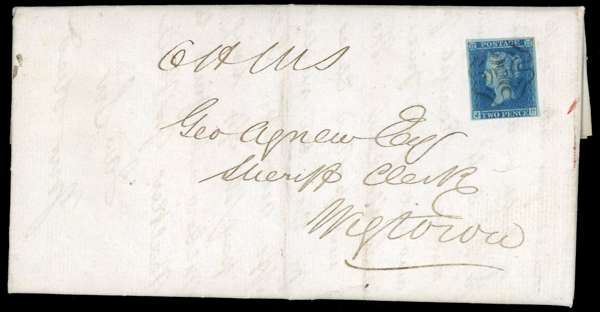 OHMS
POSTAGE
TWO PENCE
Geo Agnew Esq
Sheriff Clerk
Wigtown